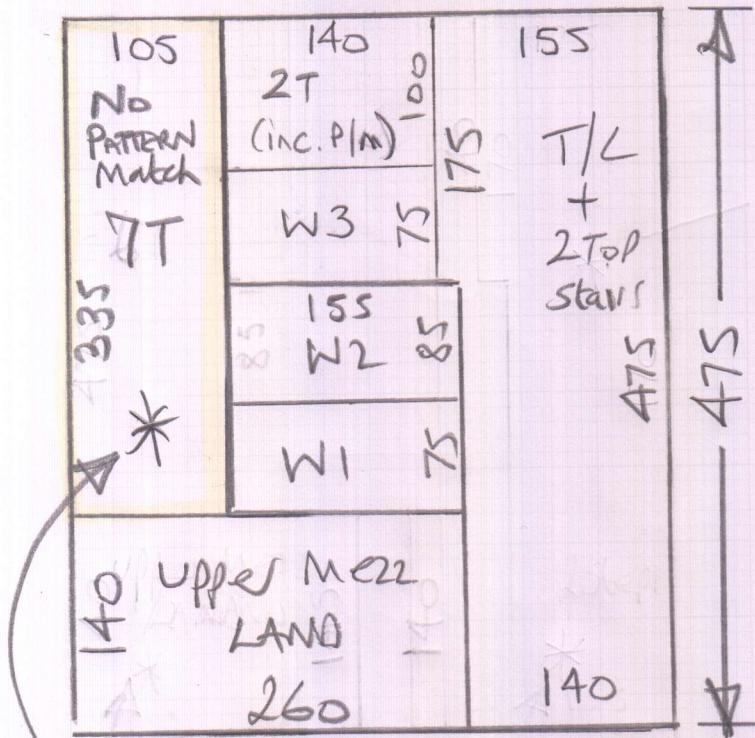 105
No
PATTERN
Match
7T
335
*
140
2T
(inc. P/M)
100
W3
75
175
155
W2
85
85
W1
75
155
T/L
+
2 TOP
stairs
475
475
140
Upper Mezz
LAND
260
140